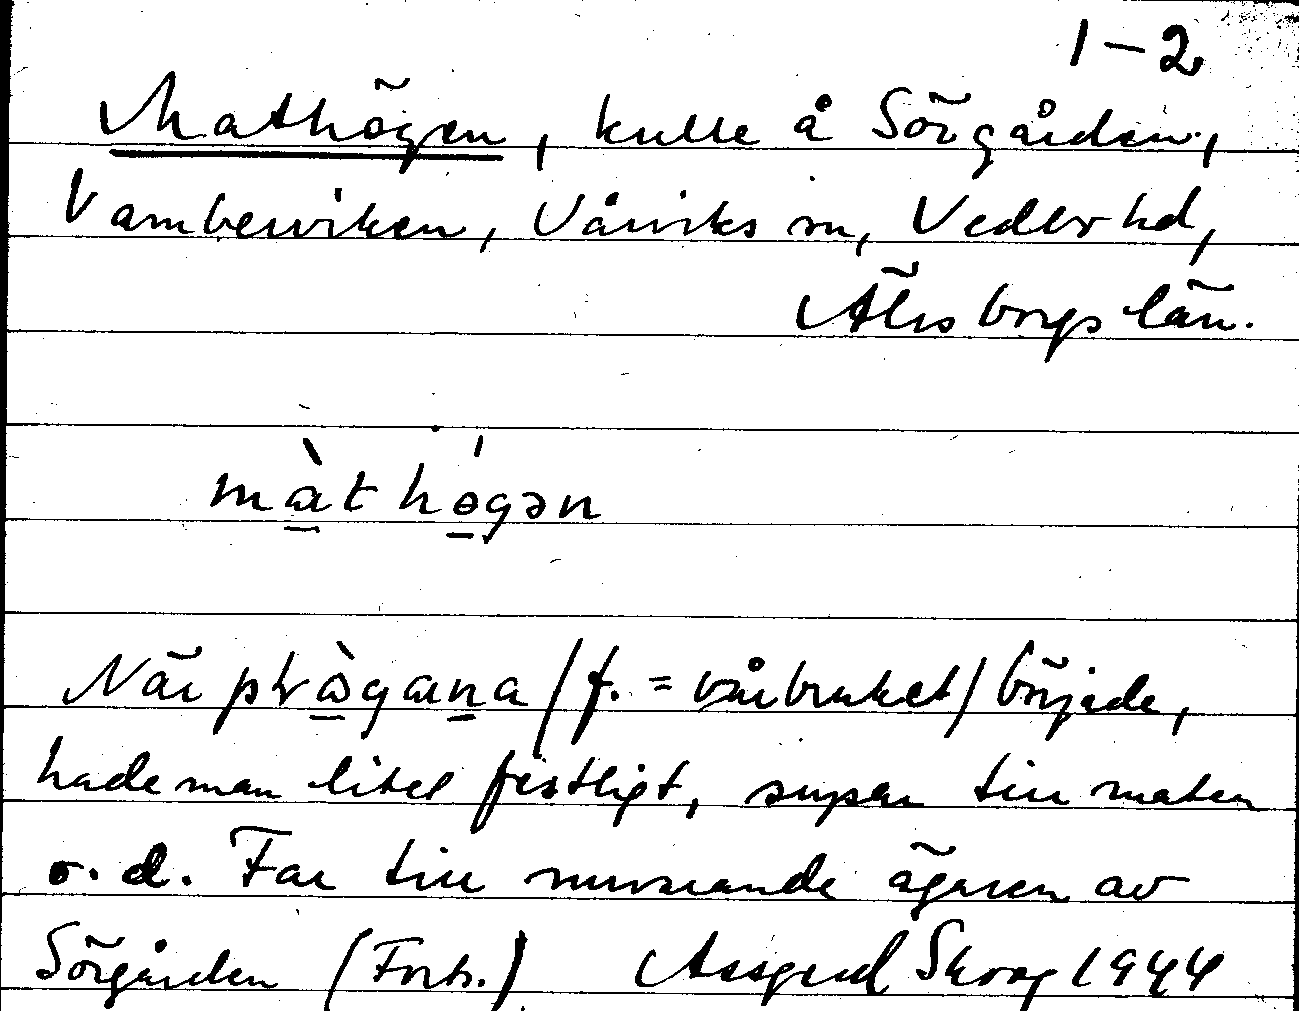 1-2
Mathögen, kulle å Sörgården,
Vambersviken, Vårviks sn, Vedbo hd,
Älvsborgs län.
màthógən
När plògana /f. = vårbruket/ började,
hade man litet festligt, supar till maten
o.d. Far till nuvarande ägaren av
Sörgården (Forts.) Assgerd Skoog 1944